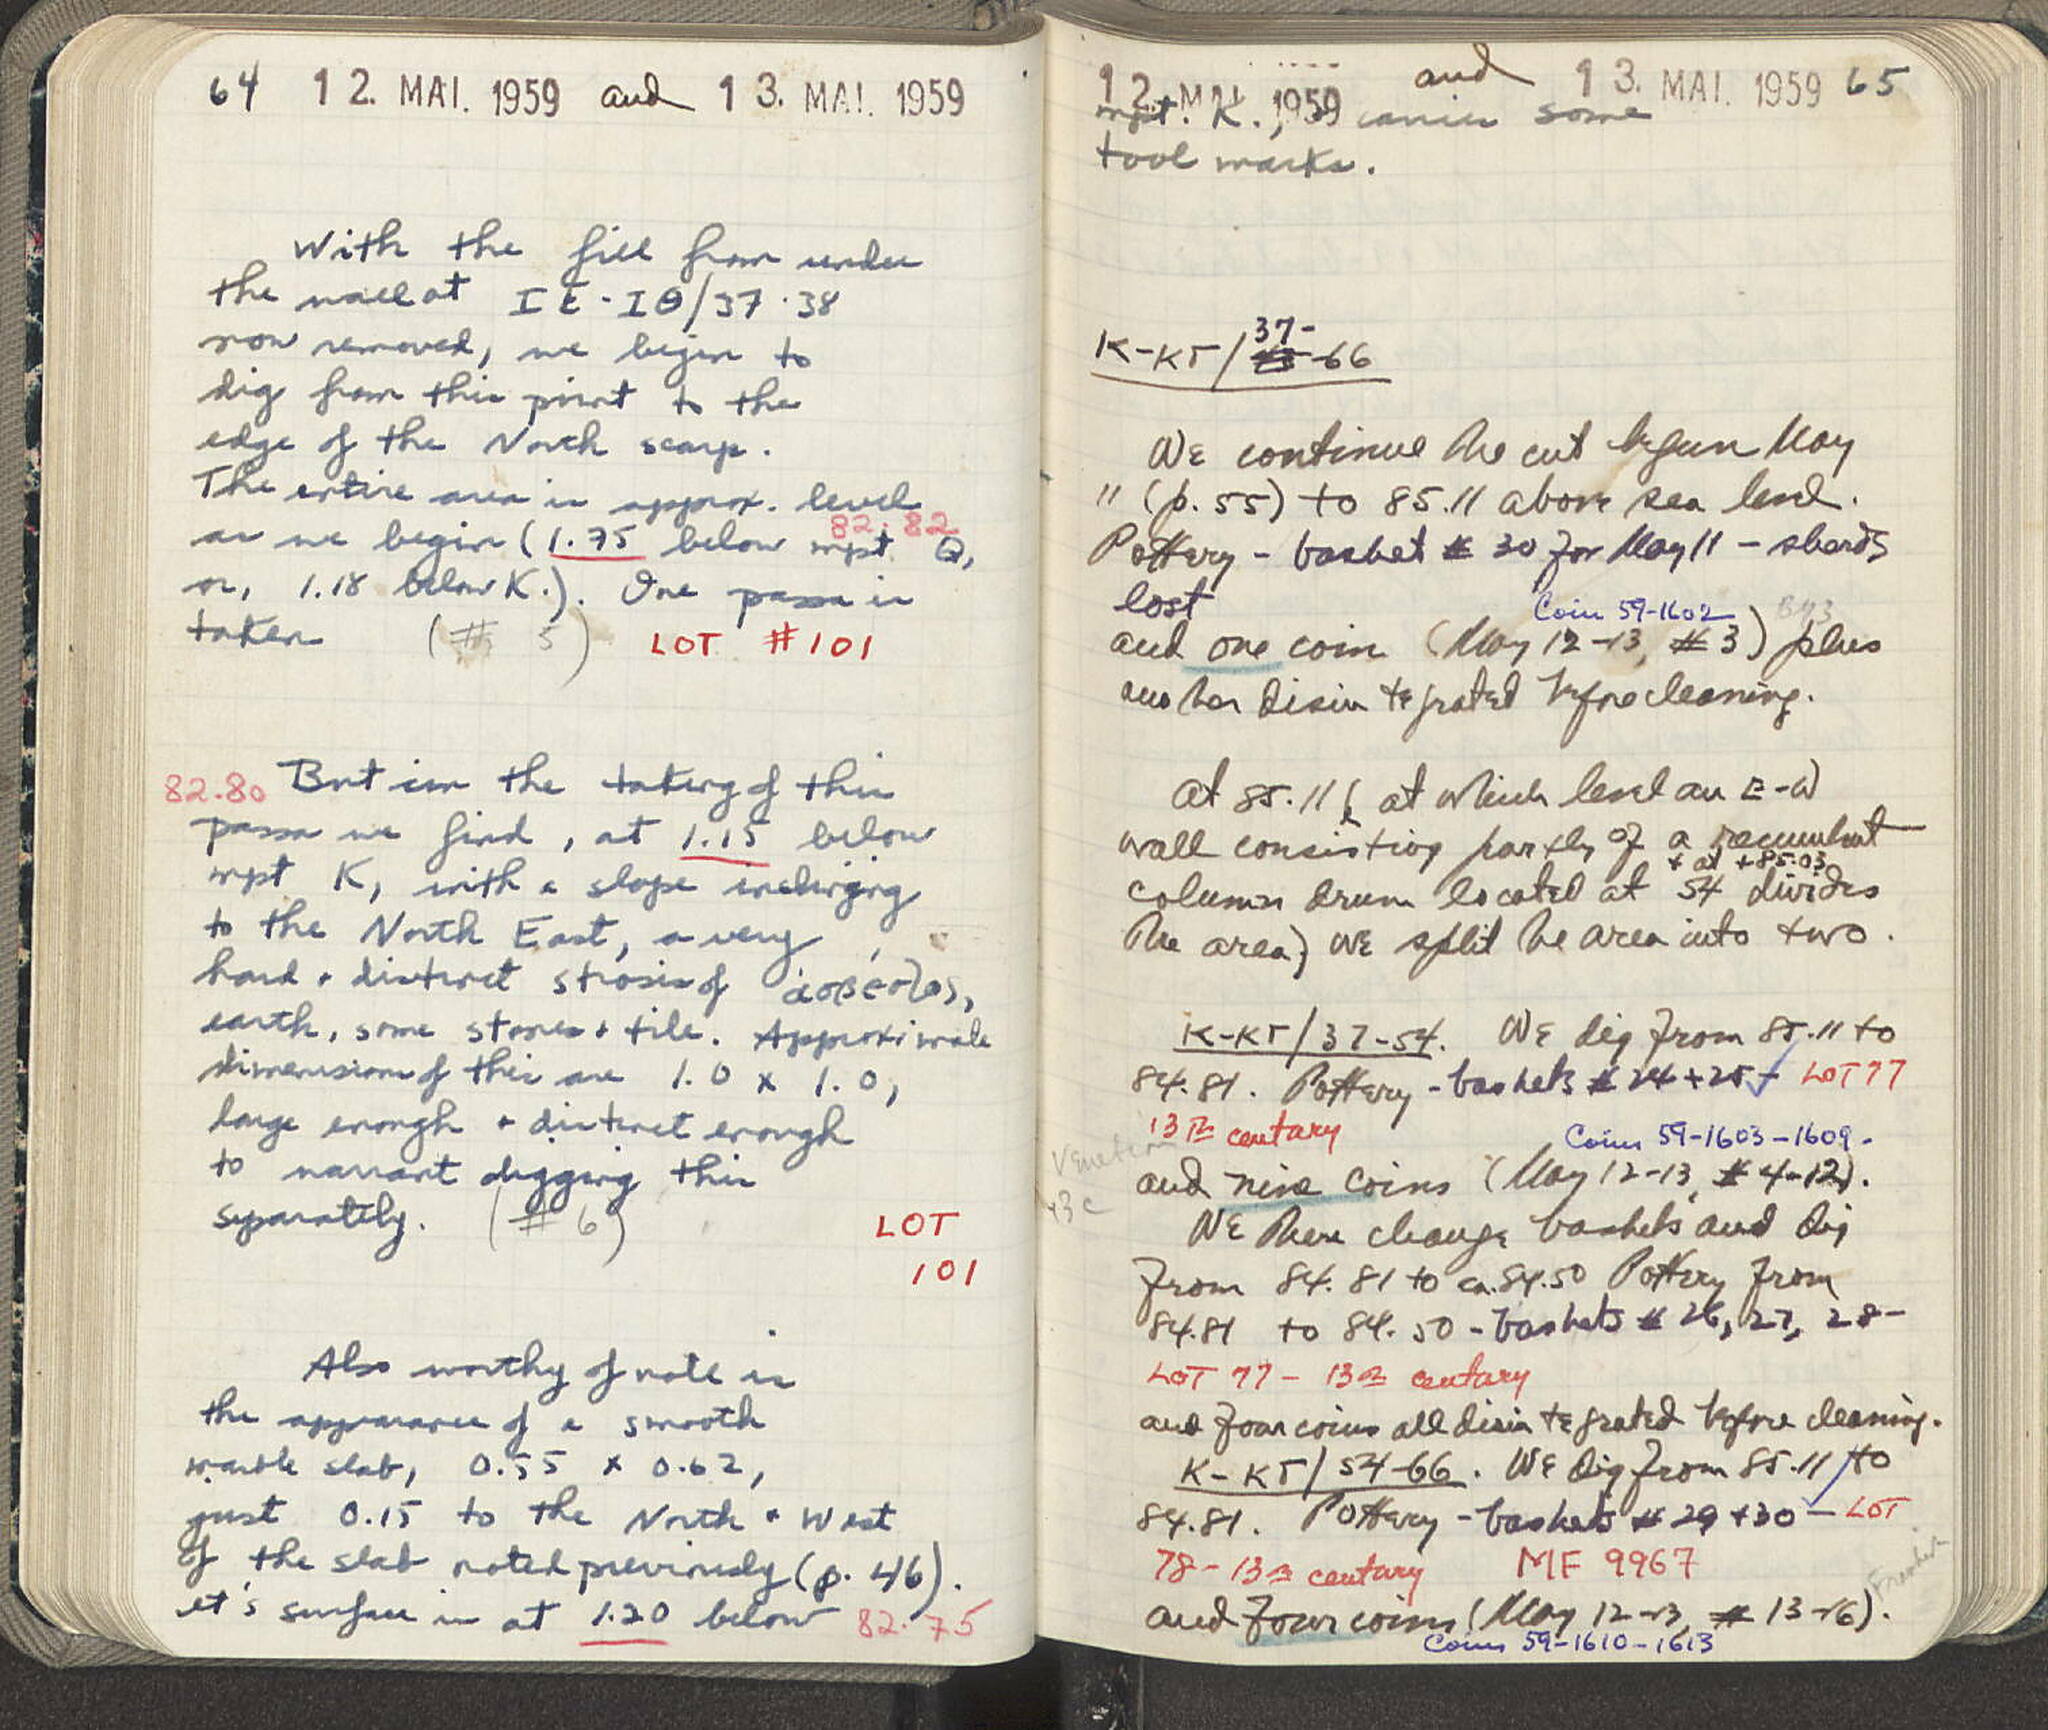 64 12. MAI. 1959 and 13. MAI. 1959
With the fill from under
the wall at IE-IΘ/37-38
now removed, we begin to
dig from this point to the
edge of the North scarp.
The entire area is approx. level
82.82
as we begin (1.75 below mpt. Q,
or, 1.18 below K.). One pass is
taken (# 5) LOT #101
82.80 But in the taking of this
pass we find, at 1.15 below
mpt K, with a slope inclining
to the North East, a very
hard + distinct strosis of
earth, some stones + tile. Approximate
dimensions of this are 1.0 x 1.0,
large enough + distinct enough
to warrant digging this
separately. (# 6) LOT
101
Also worthy of note is
the appearance of a smooth
marble slab, 0.55 x 0.62,
just 0.15 to the North + West
of the slab noted previously (p. 46).
It's surface is at 1.20 below 82.75
12. MAI. 1959 and 13. MAI. 1959 65
mpt. K., carries some
tool marks.
37-
K-KΓ/ -66
We continue the cut begun May
11 (p. 55) to 85.11 above sea level.
Pottery - basket # 30 for May 11 - sherds
lost
Coin 59-1602
and one coin (May 12-13, #3) plus
another disintegrated before cleaning.
At 85.11 (at which level an E-W
wall consisting partly of a recumbent
+ at +85.03
column drum located at 54 divides
the area) we split the area into two.
K-KΓ/37-54. We dig from 85.11 to
84.81. Pottery - baskets # 24+25 - LOT 77
13th century
Coins 59-1603-1609.
Venetian
and nine coins (May 12-13, # 4-12).
We then change baskets and dig
from 84.81 to ca. 84.50 Pottery from
84.81 to 84.50 - baskets # 26, 27, 28 -
LOT 77 - 13th century
and four coins all disintegrated before cleaning.
K-KΓ/54-66. We dig from 85.11 to
84.81. Pottery - baskets # 29+30 - LOT
78 - 13th century MF 9967
and four coins (May 12-13, # 13-16).
Frankish
Coins 59-1610-1613